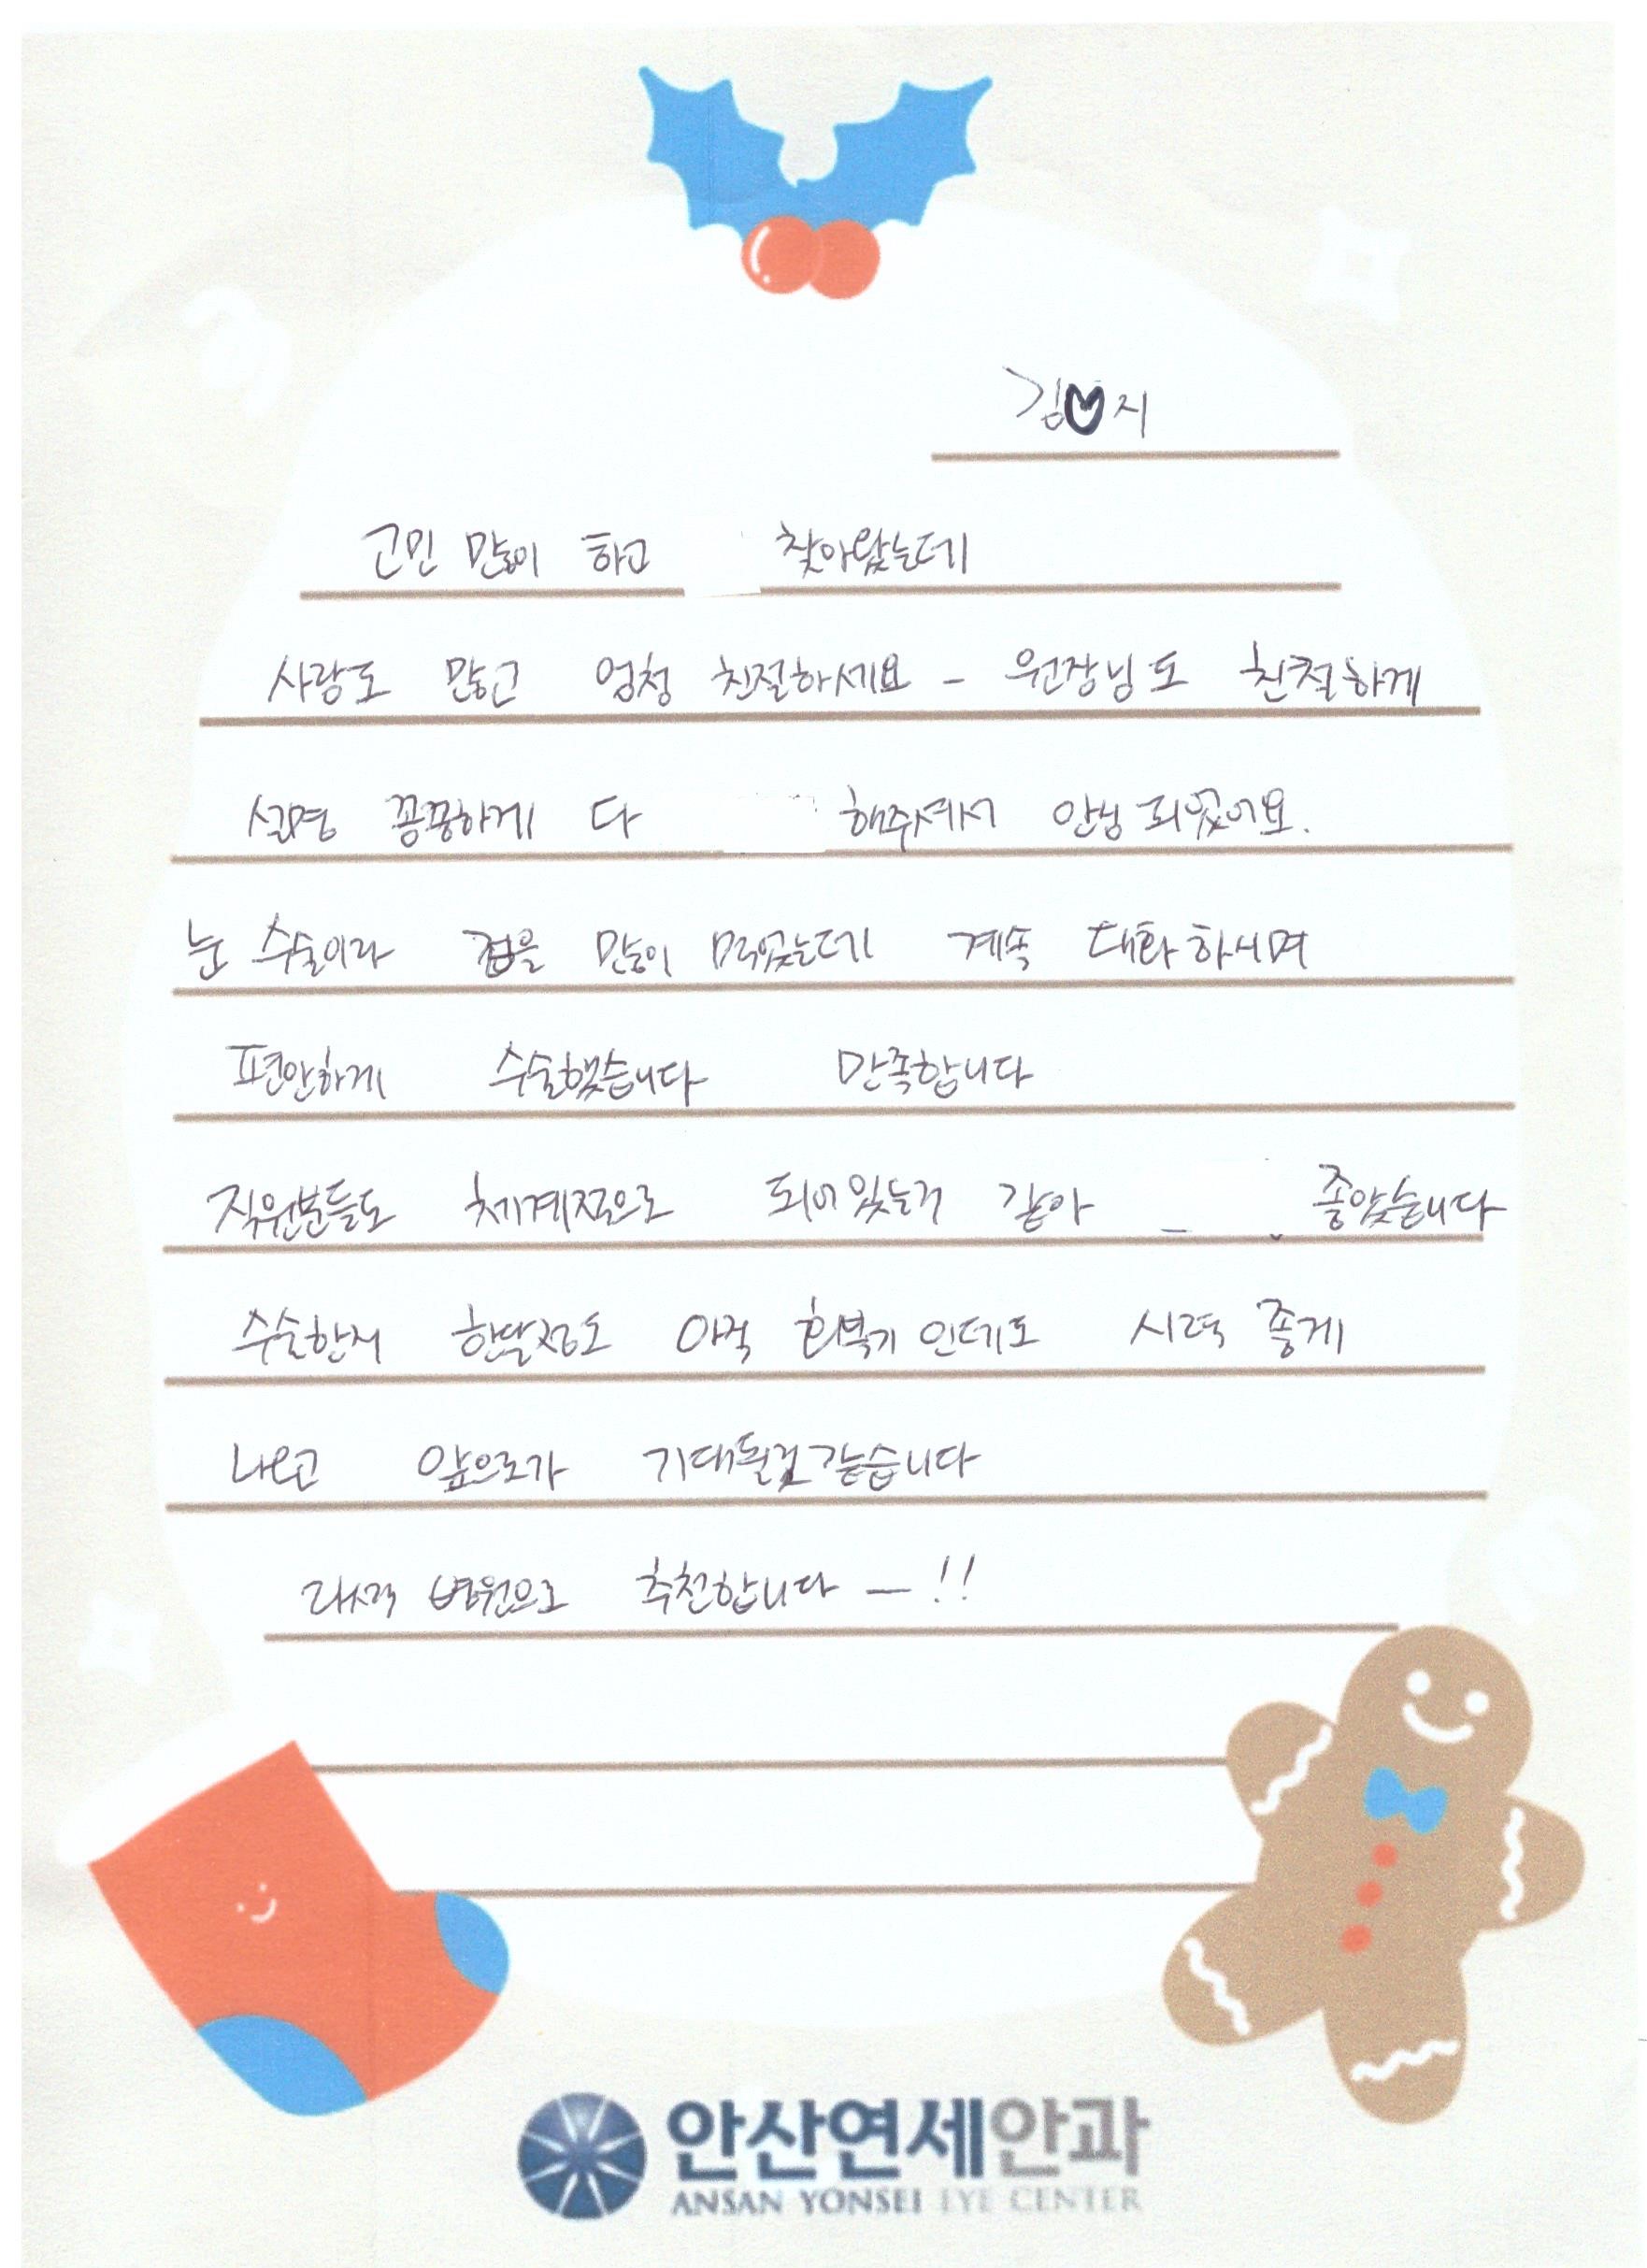 김♥지
고민 많이 하고 찾아왔는데
사람도 많고 엄청 친절하세요 - 원장님도 친절하게
설명 꼼꼼하게 다 해주셔서 안심 되었어요.
눈 수술이라 겁을 많이 먹었는데 계속 대화하시며
편안하게 수술했습니다 만족합니다
직원분들도 체계적으로 되어있는거 같아 좋았습니다
수술한지 한달정도 아직 회복기 인데도 시력 좋게
나오고 앞으로가 기대될것같습니다
라식 병원으로 추천합니다 - !!
안산연세안과
ANSAN YONSEI EYE CENTER